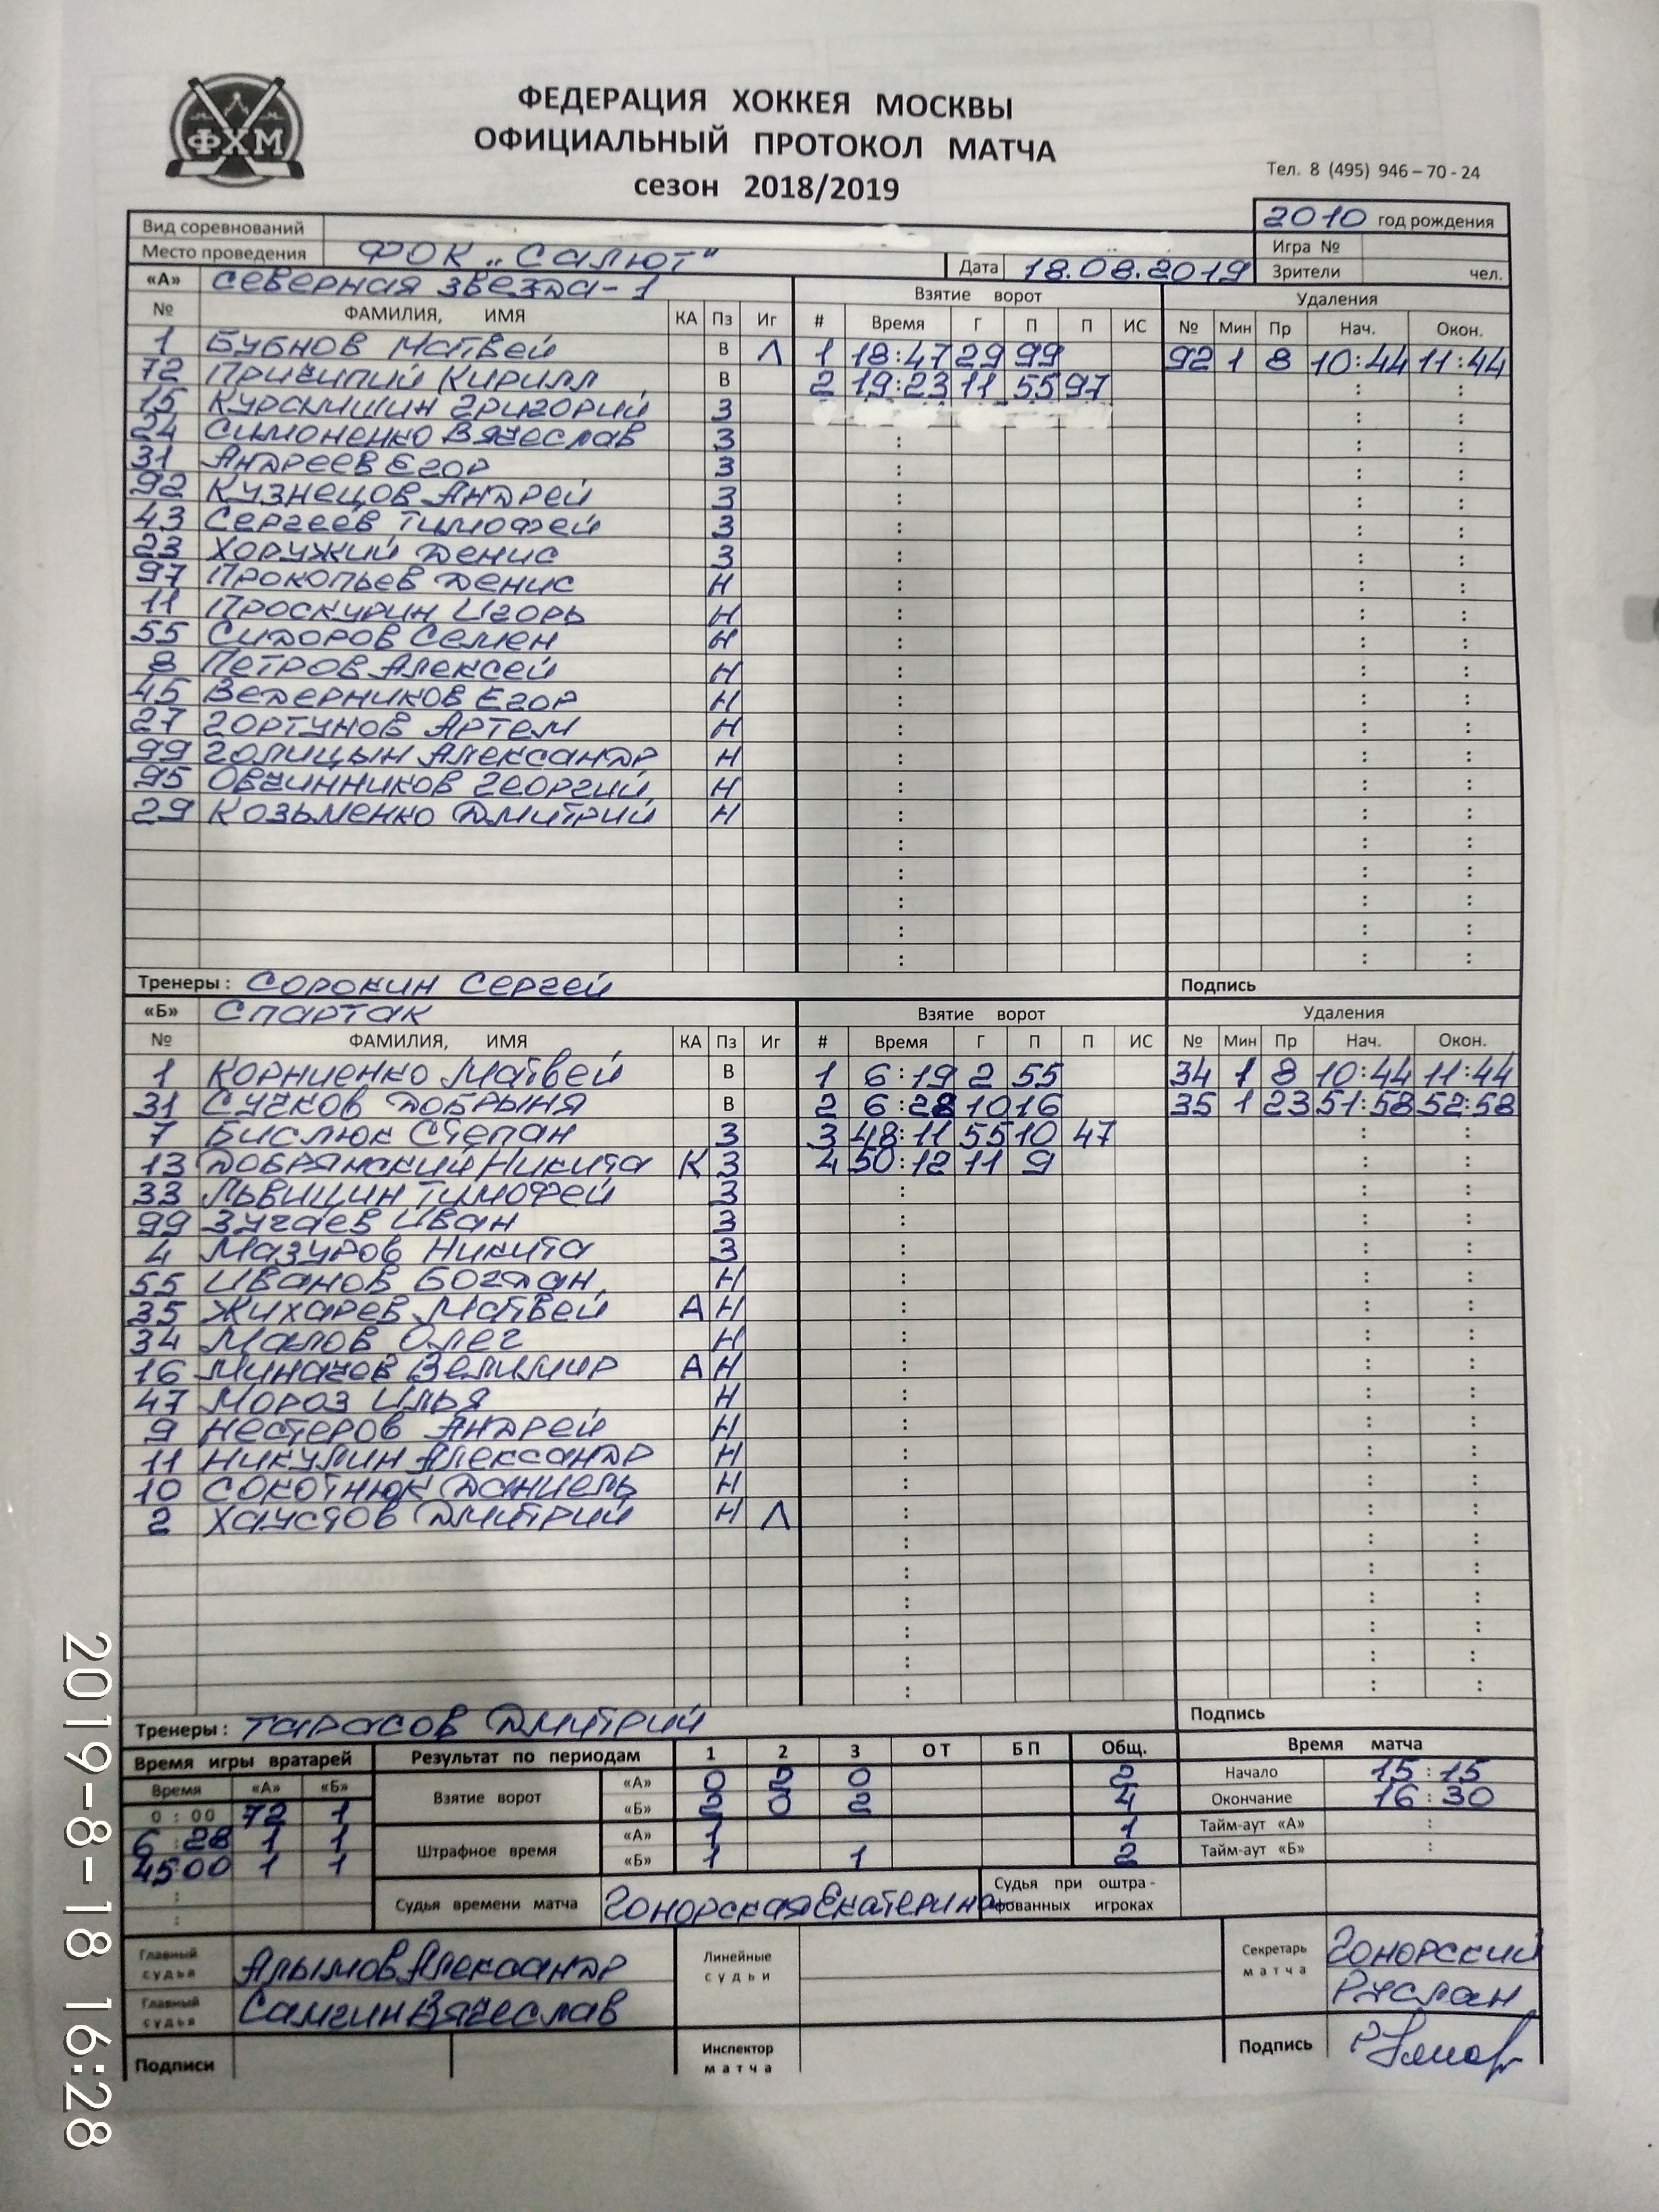 ФХМ
ФЕДЕРАЦИЯ ХОККЕЯ МОСКВЫ
ОФИЦИАЛЬНЫЙ ПРОТОКОЛ МАТЧА
сезон 2018/2019
Тел. 8 (495) 946–70-24
Вид соревнований 2010 год рождения
Место проведения ФОК „Салют" Дата 18.08.2019 Игра №
Зрители чел.
«А» Северная звезда-1 Взятие ворот Удаления
№ ФАМИЛИЯ, ИМЯ КА Пз Иг # Время Г П П ИС № Мин Пр Нач. Окон.
1 Бубнов Матвей В Л 1 18:47 29 99 92 1 8 10:44 11:44
72 Кирилл В 2 19:23 11 55 97
15 Курамшин Григорий З
24 Симоненко Вячеслав З
31 Андреев Егор З
92 Кузнецов Андрей З
43 Сергеев Тимофей З
23 Хоружий Денис З
97 Прокопьев Денис Н
11 Проскурин Игорь Н
55 Сидоров Семен Н
8 Петров Алексей Н
45 Ведерников Егор Н
27 Гортунов Артем Н
99 Голицын Александр Н
95 Овчинников Георгий Н
29 Козьменко Дмитрий Н
Тренеры: Сорокин Сергей Подпись
«Б» Спартак Взятие ворот Удаления
№ ФАМИЛИЯ, ИМЯ КА Пз Иг # Время Г П П ИС № Мин Пр Нач. Окон.
1 Корниенко Матвей В 1 6:19 2 55 34 1 8 10:44 11:44
31 Сучков Добрыня В 2 6:28 10 16 35 1 23 51:58 52:58
7 Бислюк Степан З 3 48:11 55 10 47
13 Добрянский Никита К З 4 50:12 11 9
33 Львицин Тимофей З
99 Зугаев Иван З
4 Мазуров Никита З
55 Иванов Богдан Н
35 Жихарев Матвей А Н
34 Малов Олег Н
16 Велимир А Н
47 Мороз Илья Н
9 Нестеров Андрей Н
11 Никулин Александр Н
10 Сокотнюк Даниель Н
2 Хаустов Дмитрий Н Л
Тренеры: Тарасов Дмитрий Подпись
Время игры вратарей Результат по периодам 1 2 3 ОТ БП Общ. Время матча
Время «А» «Б» Взятие ворот «А» 0 2 0 2 Начало 15:15
0:00 72 1 «Б» 2 0 2 4 Окончание 16:30
6:28 1 1 Штрафное время «А» 1 1 Тайм-аут «А» :
45:00 1 1 «Б» 1 1 2 Тайм-аут «Б» :
Судья времени матча Гонорская Екатерина Судья при оштра-
фованных игроках
Главный судья Алымов Александр Линейные судьи Секретарь матча Гонорский
Главный судья Самгин Вячеслав Руслан
Подписи Инспектор матча Подпись
2019-8-18 16:28